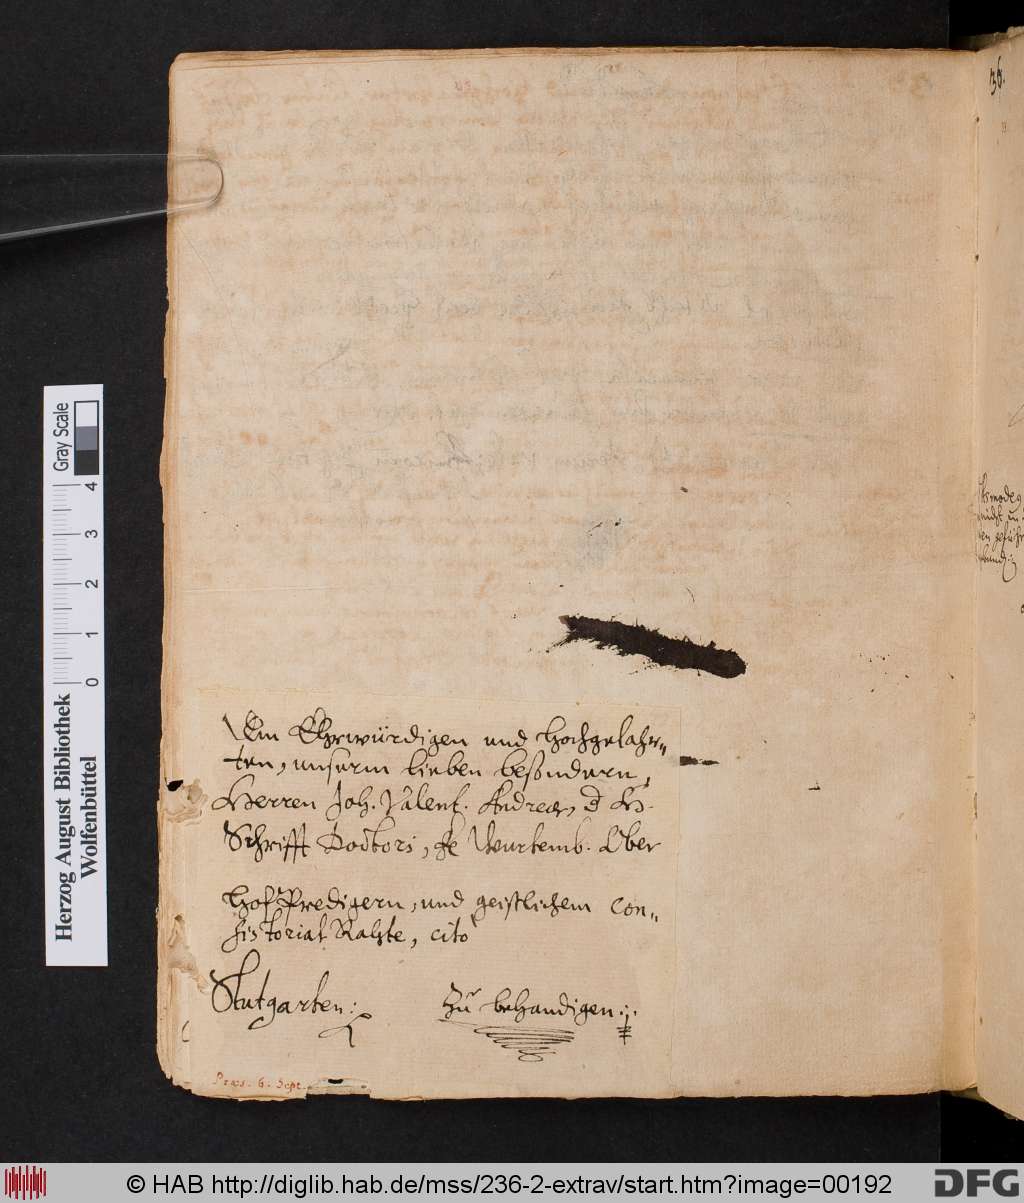 36.
Dem Ehrwürdigen und Hochgelahr=
ten, unserm lieben besondern,
Herren Joh. Valent. Andreæ, d H.
Schrifft Doctori, fe Wurtemb. Ober
Hof Predigern, und geistlichem Con=
sistorial Rahte, cito
Stutgarten:
Zu behandigen:
Præs. 6. Sept.
Gray Scale
0 1 2 3 4
Herzog August Bibliothek
Wolfenbüttel
© HAB http://diglib.hab.de/mss/236-2-extrav/start.htm?image=00192
DFG